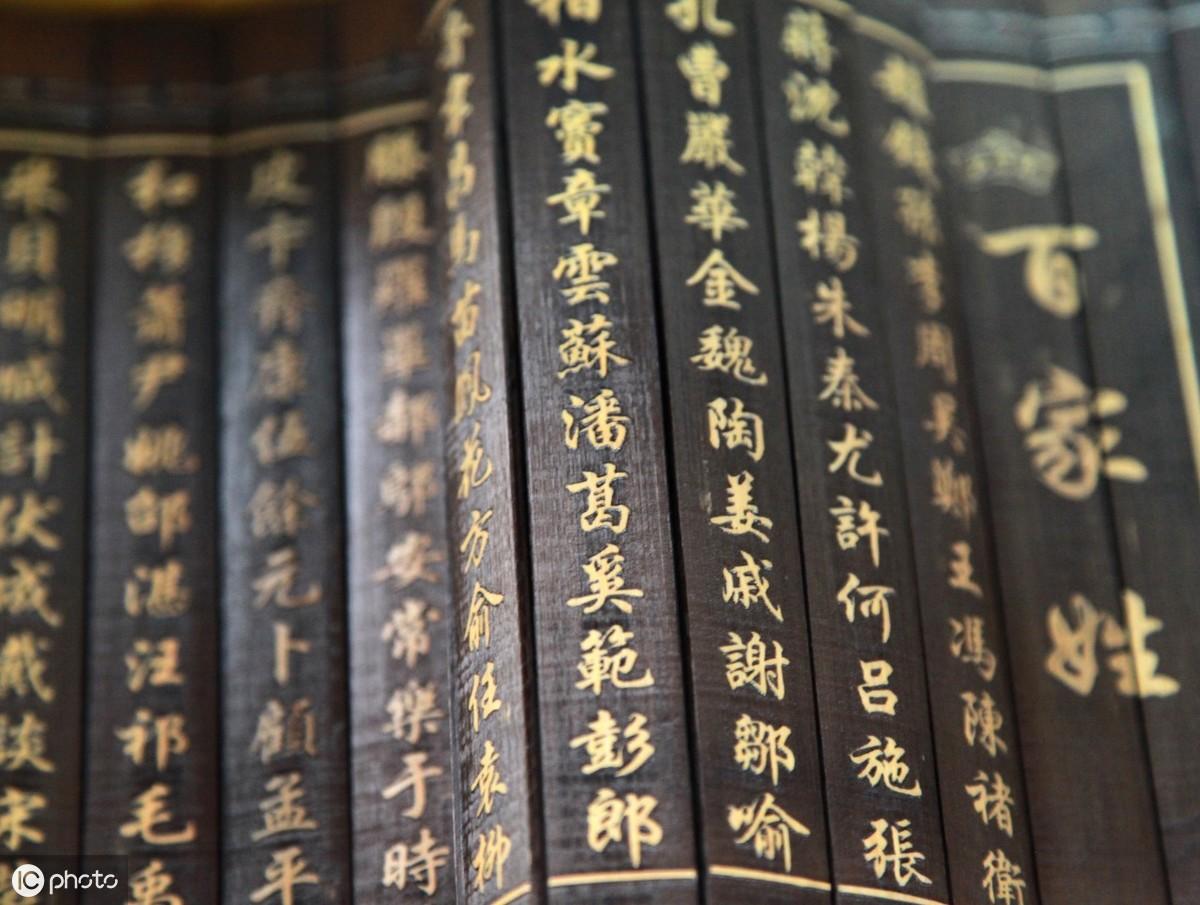 百家姓
趙錢孫李周吳鄭王馮陳褚衛
蔣沈韓楊朱秦尤許何呂施張
孔曹嚴華金魏陶姜戚謝鄒喻
柏水竇章雲蘇潘葛奚範彭郎
魯韋昌馬苗鳳花方俞任袁柳
滕殷羅畢郝鄔安常樂于時
皮卞齊康伍餘元卜顧孟平
和穆蕭尹姚邵湛汪祁毛禹
米貝明臧計伏成戴談宋
IC photo